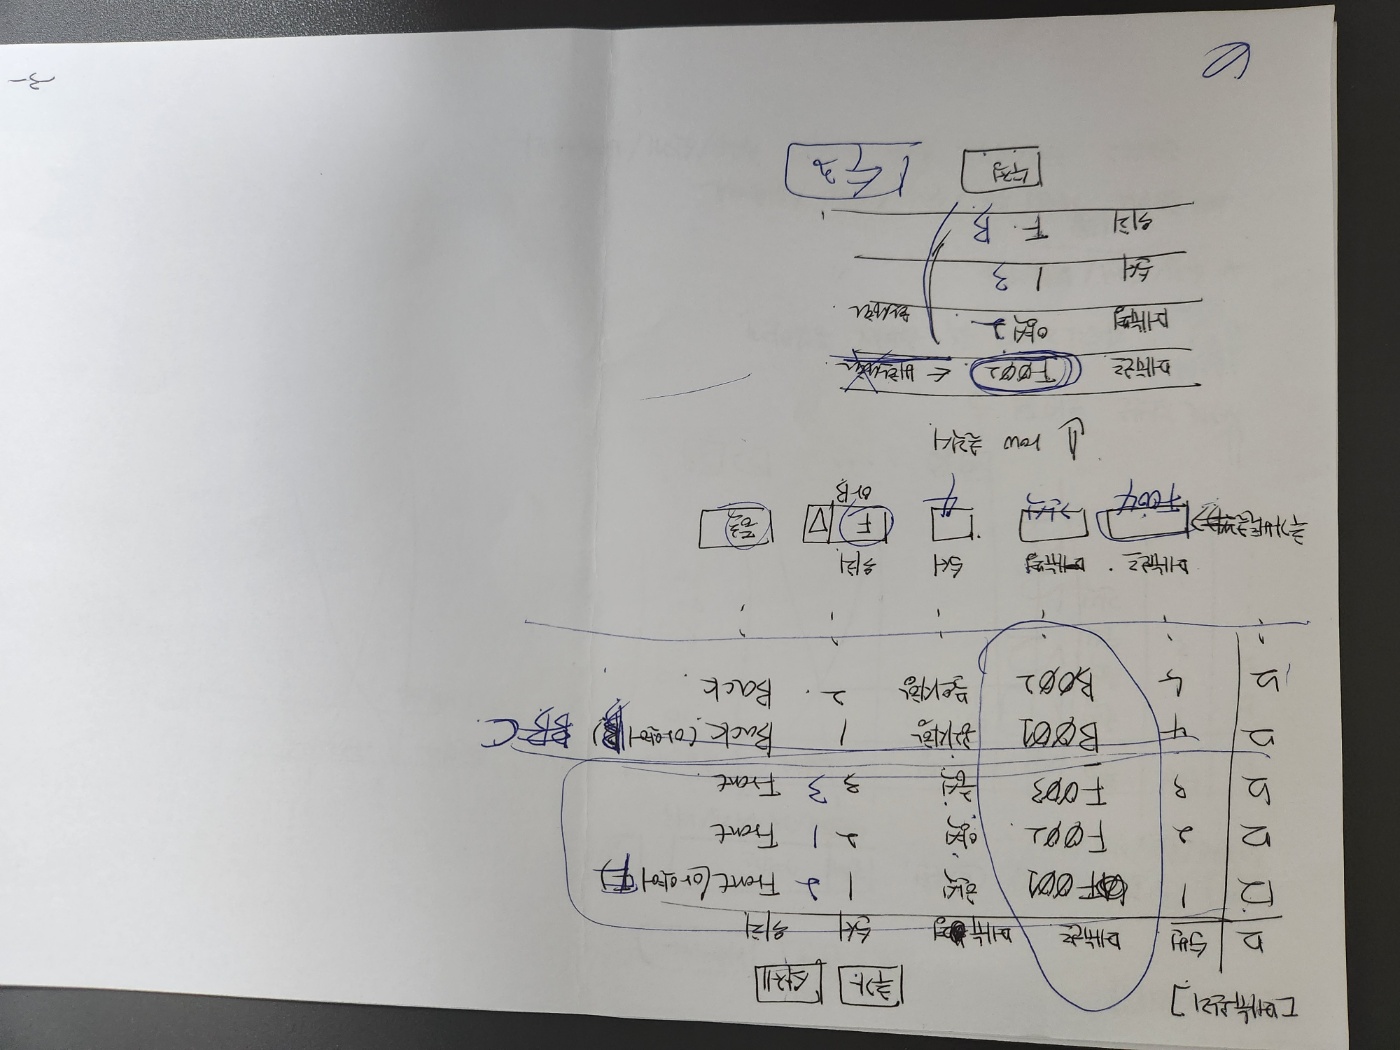 [메뉴관리]
추가 삭제
순번 메뉴코드 메뉴명 순서 위치
1 F001 한식 1 2 Front (아 약어 F)
2 F002 양식 2 1 Front
3 F003 중식 3 3 Front
4 B001 공지사항 1 Back (아 약어 B) C
5 B002 문의사항 2 Back
메뉴코드 메뉴명 순서 위치
추가버튼클릭시→ F 등록
F004 간식 4 아B
↓ row 클릭시
메뉴코드 F002 ← 비활성화
메뉴명 양식2 활성화
순서 1 3
위치 F B
수정 수정
-3-